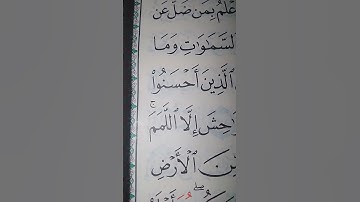 عْلَمُ بِمَن ضَلَّ عَن
ٱلسَّمَٰوَٰتِ وَمَا
ٱلَّذِينَ أَحْسَنُوا۟
حِشَ إِلَّا ٱللَّمَمَ ۚ
ٱلْأَرْضِ